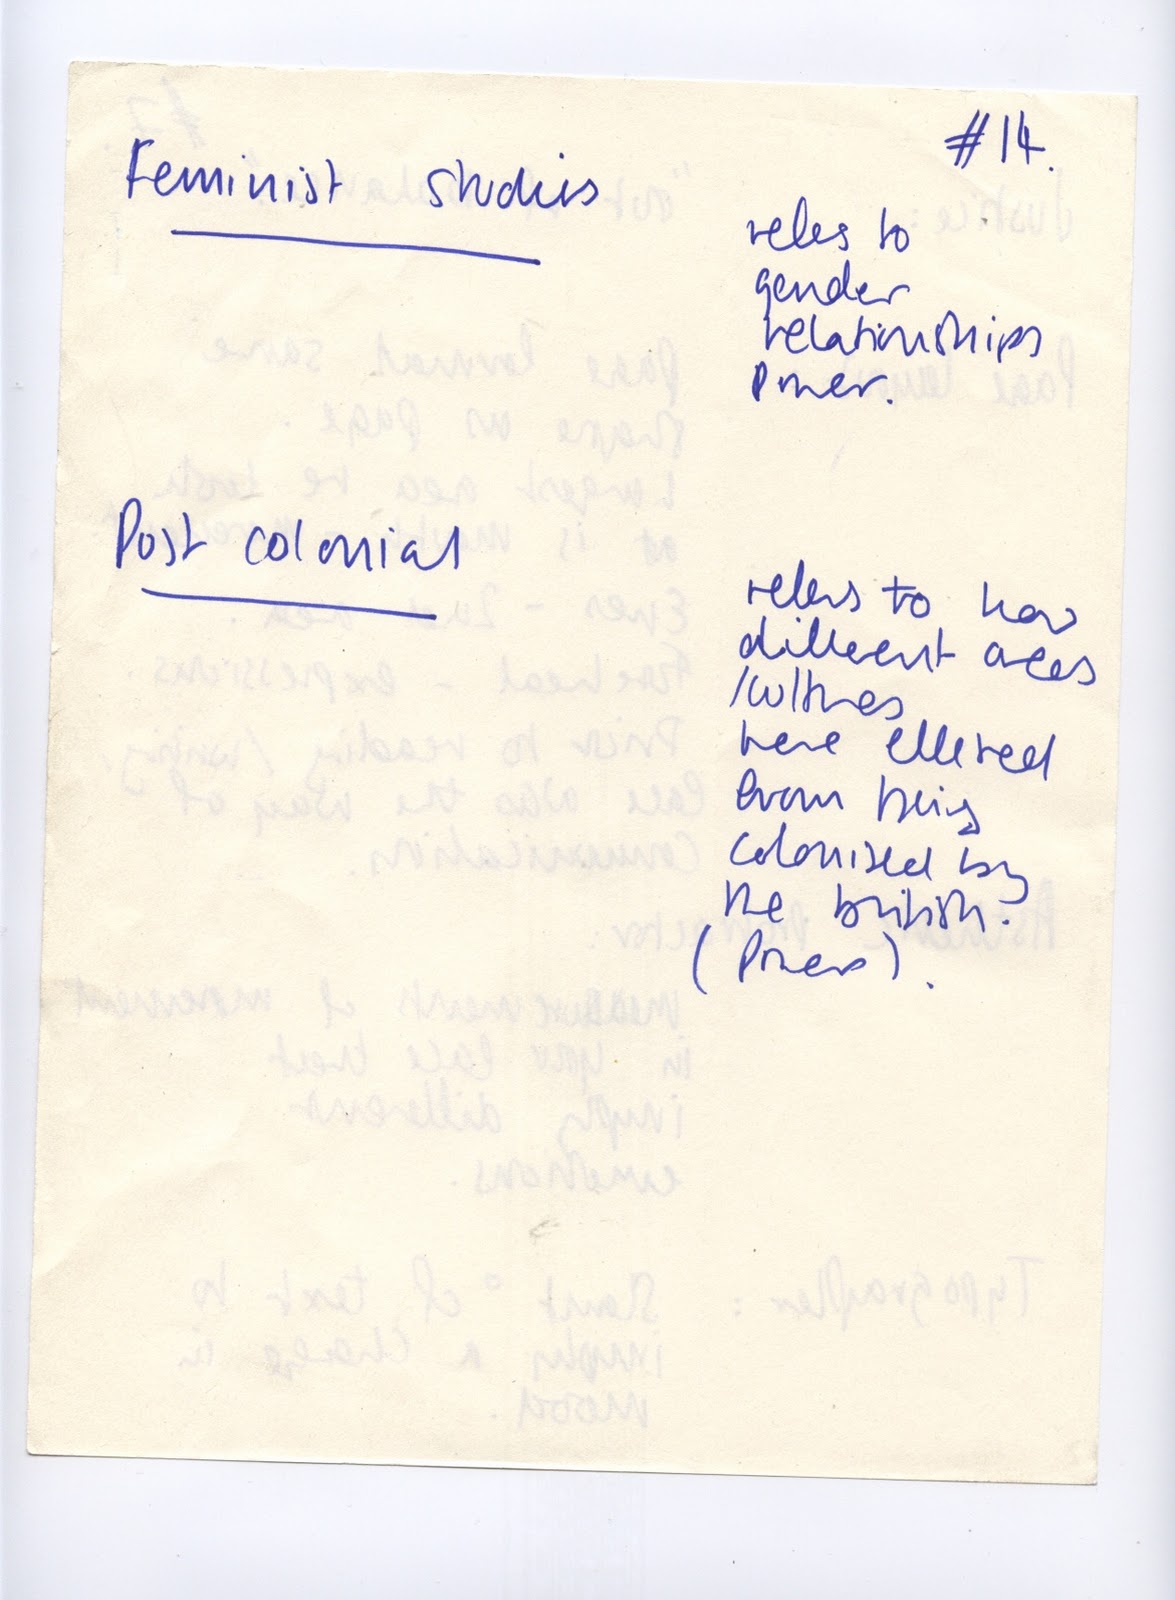 #14.
Feminist studies
refers to
gender
relationships
Power.
Post colonial
refers to how
different areas
/cultures
were effected
from being
colonised by
the british.
(Power).